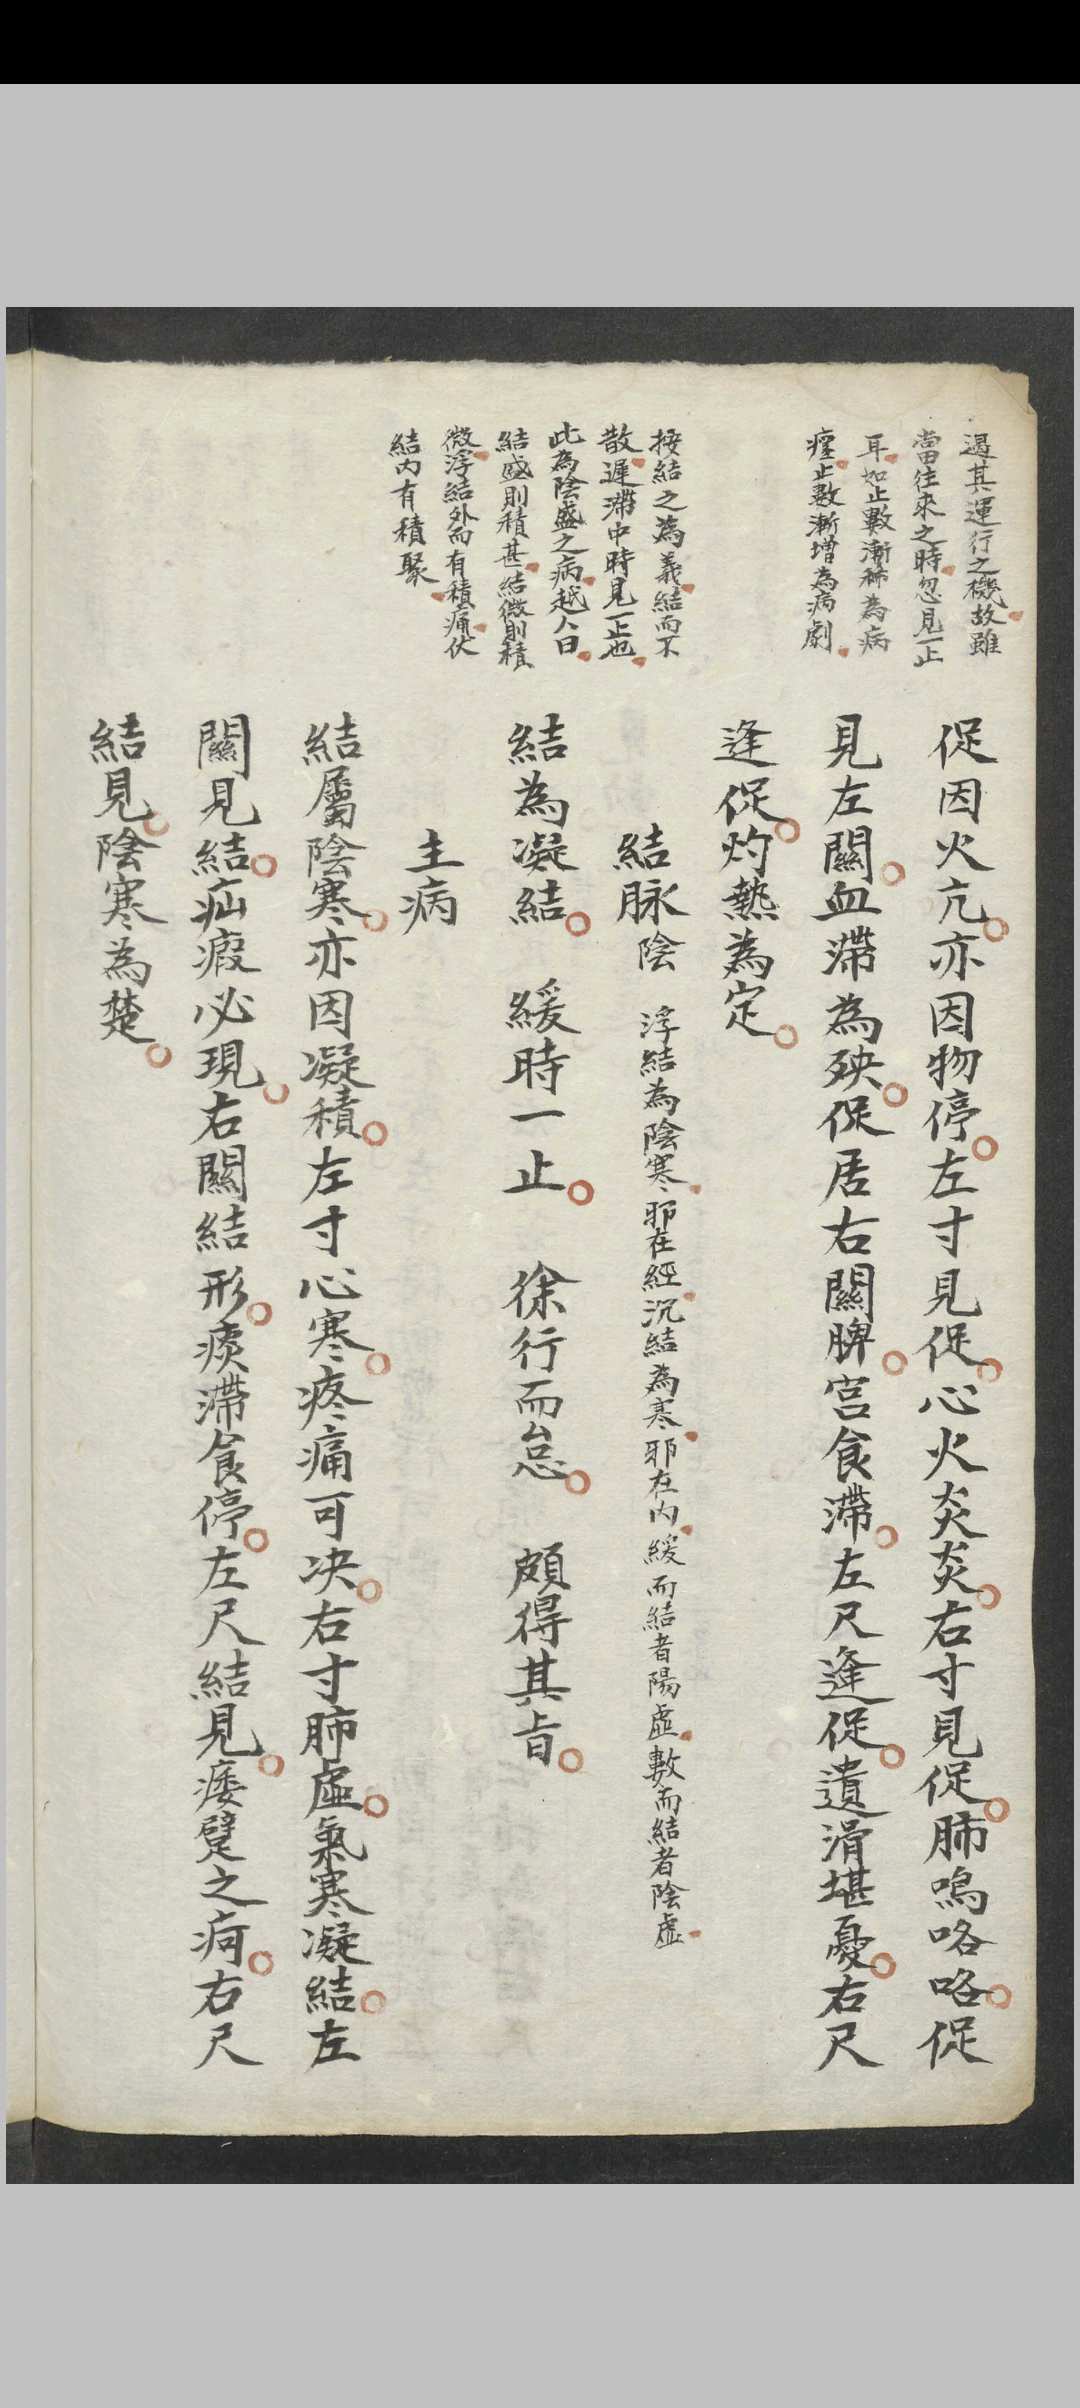 遏其運行之機故雖
當往來之時忽見一止
耳如止數漸稀為病
瘥止數漸增為病劇
按結之為義結而不
散遲滯中時見一止也
此為陰盛之病越人曰
結盛則積甚結微則積
微浮結外而有積痛伏
結內有積聚
促因火亢亦因物停左寸見促心火炎炎右寸見促肺鳴咯咯促
見左關血滯為殃促居右關脾宮食滯左尺逢促遺滑堪憂右尺
逢促灼熱為定
結脉陰 浮結為陰寒邪在經沉結為寒邪在內緩而結者陽虛數而結者陰虛
結為凝結 緩時一止 徐行而怠 頗得其旨
主病
結屬陰寒亦因凝積左寸心寒疼痛可决右寸肺虛氣寒凝結左
關見結疝瘕必現右關結形痰滯食停左尺結見痿躄之疴右尺
結見陰寒為楚